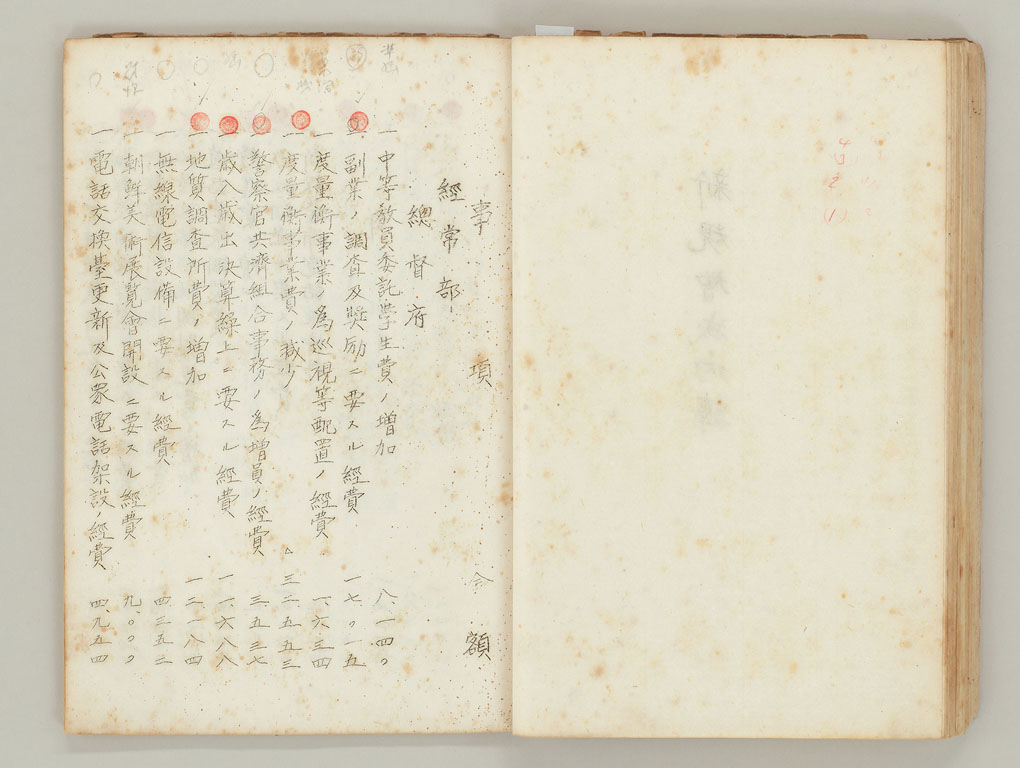 事項 金額
經常部
總督府
一 中等教員委託學生費ノ増加 八、一四〇
一 副業ノ調査及奬励ニ要スル經費 一七、〇一五
一 度量衡事業ノ為巡視等配置ノ經費 一、六三四
一 度量衡事業費ノ減少 △三二、五五三
一 警察官共濟組合事務ノ為増員ノ經費 三、五三七
一 歳入歳出決算繰上ニ要スル經費 一一、六八八
一 地質調査所費ノ増加 一二、一八四
一 無線電信設備ニ要スル經費 四、二五二
一 朝鮮美術展覧會開設ニ要スル經費 九、〇〇〇
一 電話交換臺更新及公衆電話架設ノ經費 四、九五四